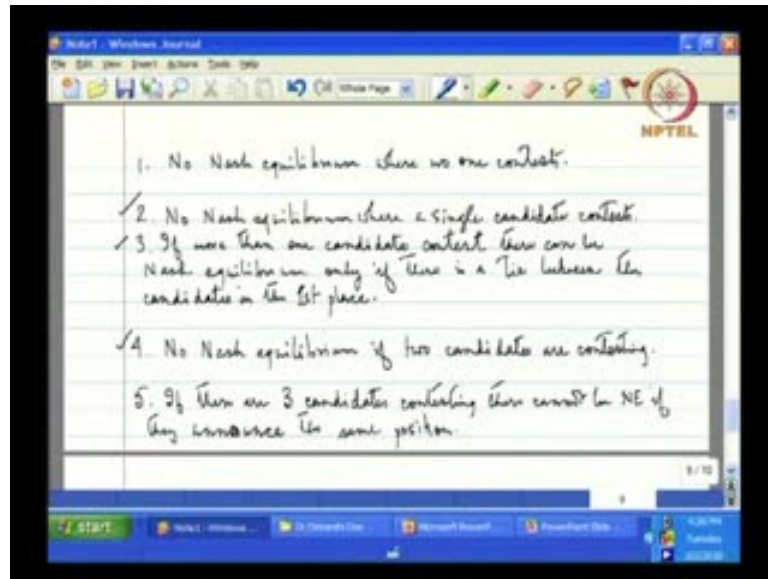 Note1 - Windows Journal
File Edit View Insert Actions Tools Help
Whole Page
NPTEL
1. No Nash equilibrium where no one contests.
2. No Nash equilibrium where a single candidate contests.
3. If more than one candidate contest there can be
Nash equilibrium only if there is a tie between the
candidates in the 1st place.
4. No Nash equilibrium if two candidates are contesting.
5. If there are 3 candidates contesting there cannot be NE if
they announce the same position.
9 / 10
9
start
Note1 - Windows ...
Microsoft PowerP...
PowerPoint Slide ...
Tuesday